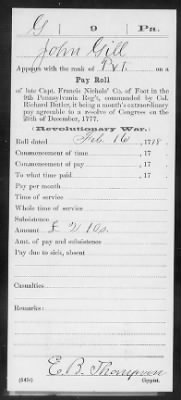 G | 9 | Pa.
John Gill
Appears with the rank of Pvt. on a
Pay Roll
of late Capt. Francis Nichols' Co. of Foot in the
9th Pennsylvania Reg't, commanded by Col.
Richard Butler, it being a month's extraordinary
pay agreeable to a resolve of Congress on the
29th of December, 1777.
(Revolutionary War.)
Roll dated Feb. 16, 1778.
Commencement of time , 17
Commencement of pay , 17
To what time paid , 17
Pay per month
Time of service
Whole time of service
Subsistence
Amount £ 2 10s.
Amt. of pay and subsistence
Pay due to sick, absent
Casualties
Remarks:
E. B. Thompson
(545c) Copyist.